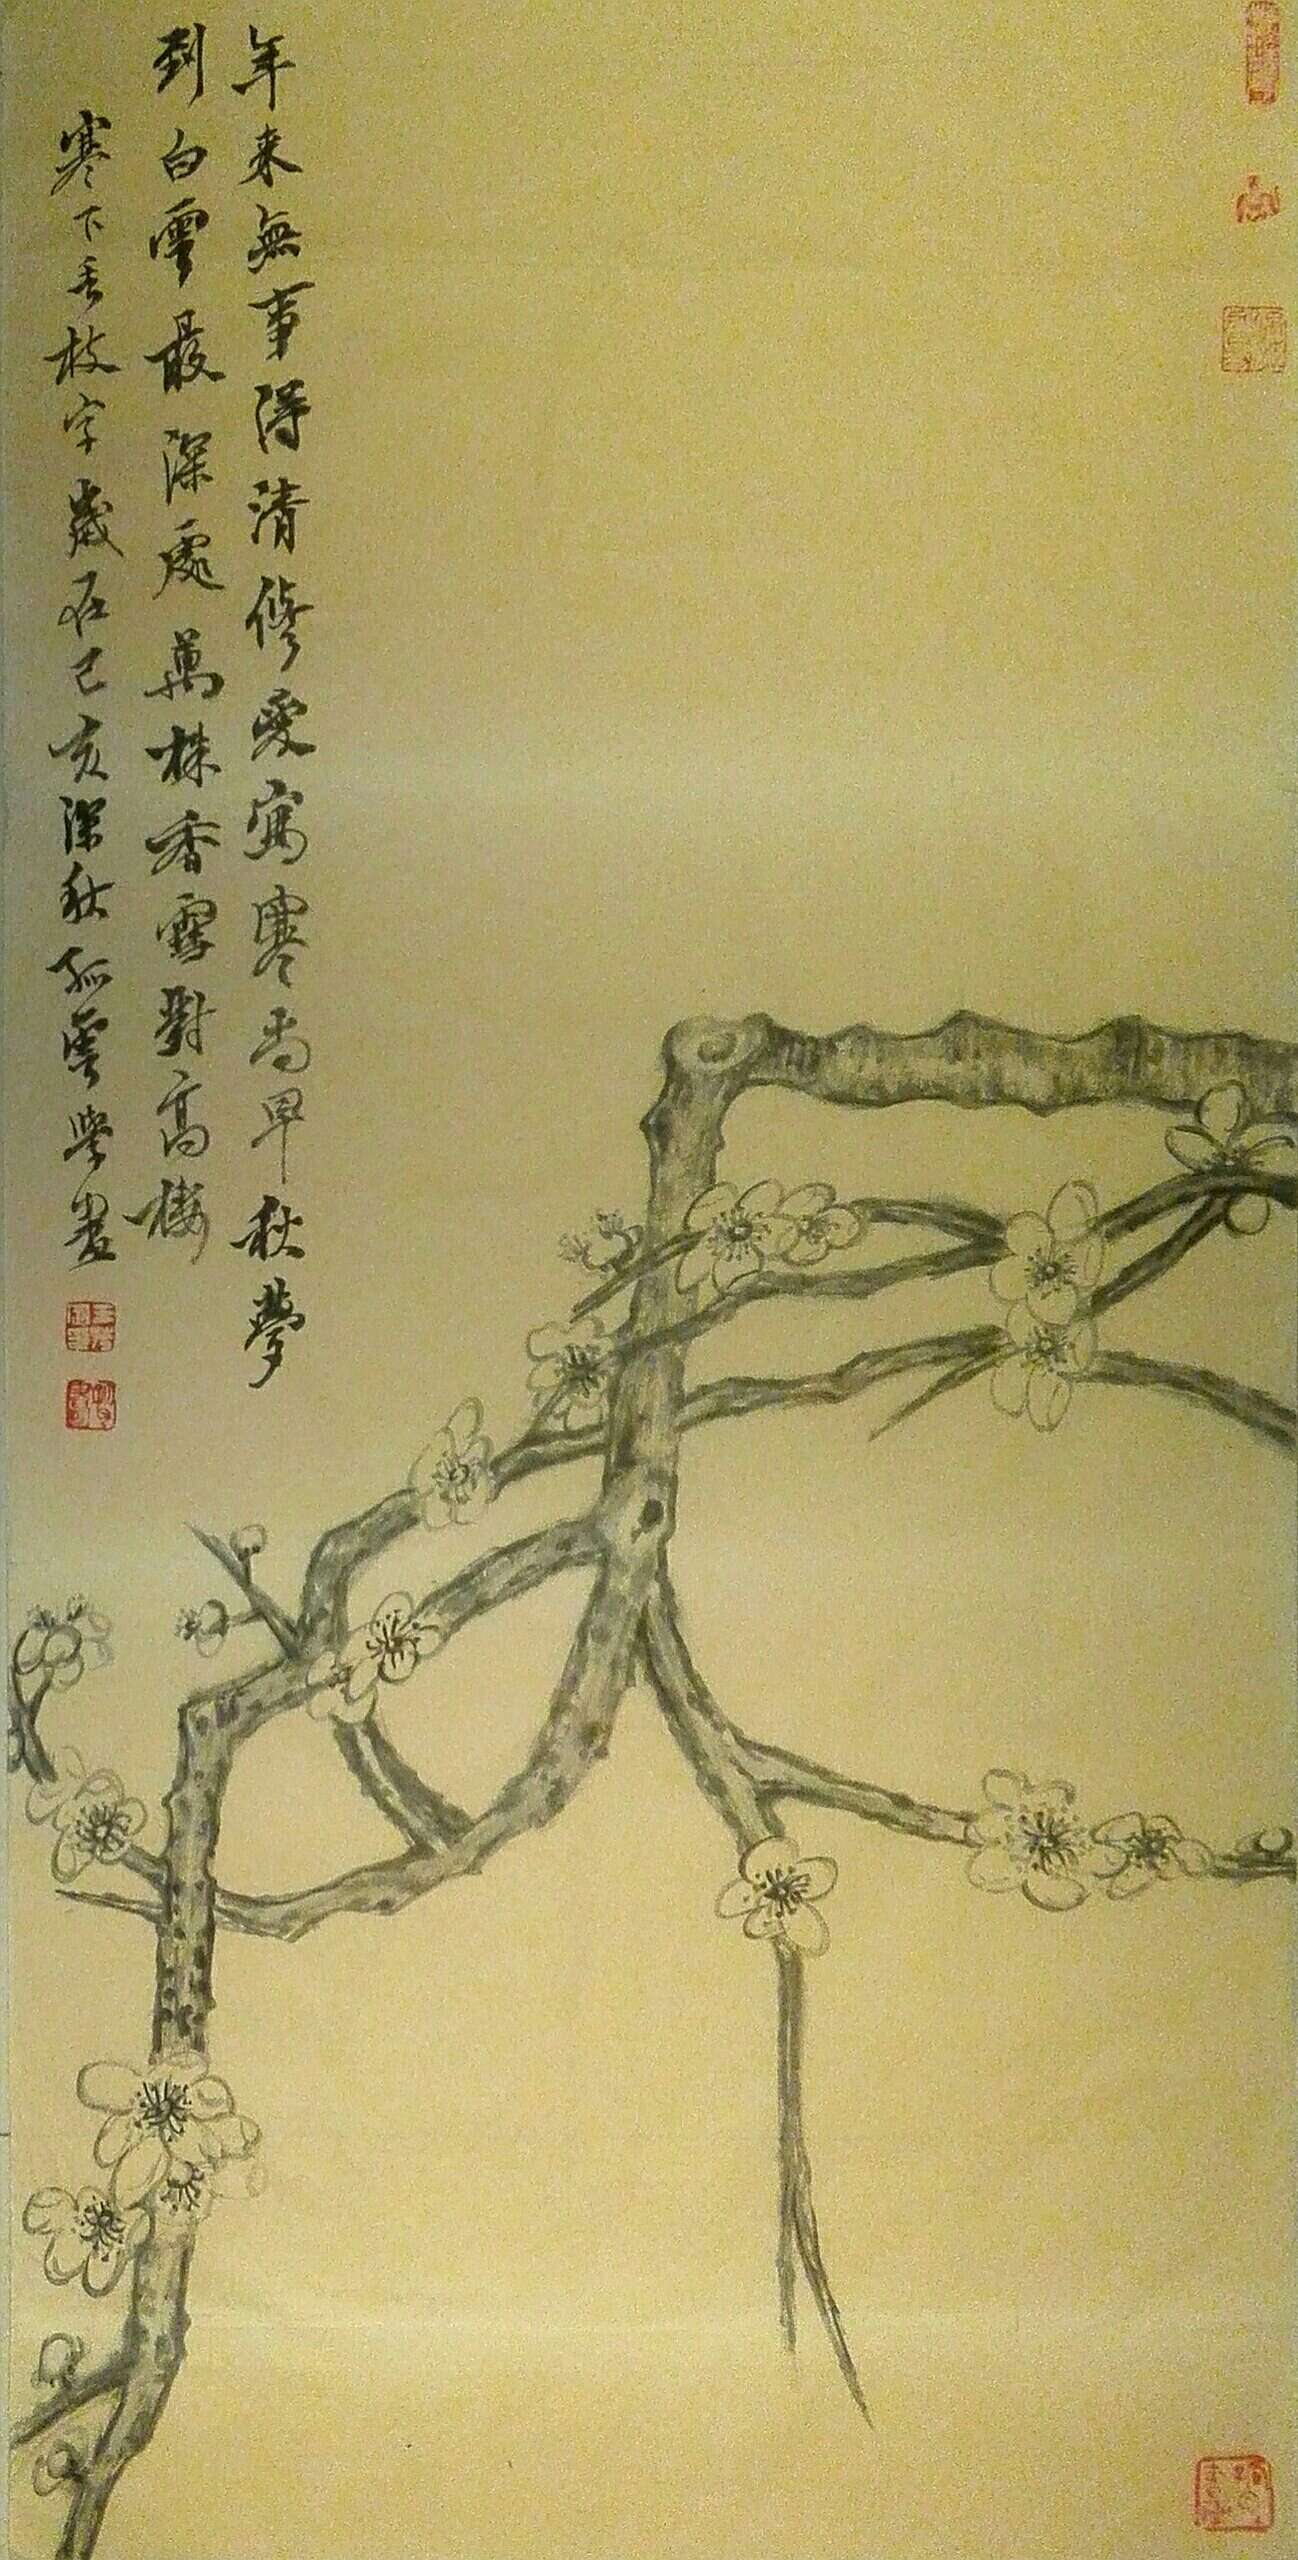 年来無事得清修愛寫寒尚早秋夢
到白雲最深處萬株香雪對高樓
寒下丢枝字歲在己亥深秋孤雲學畫